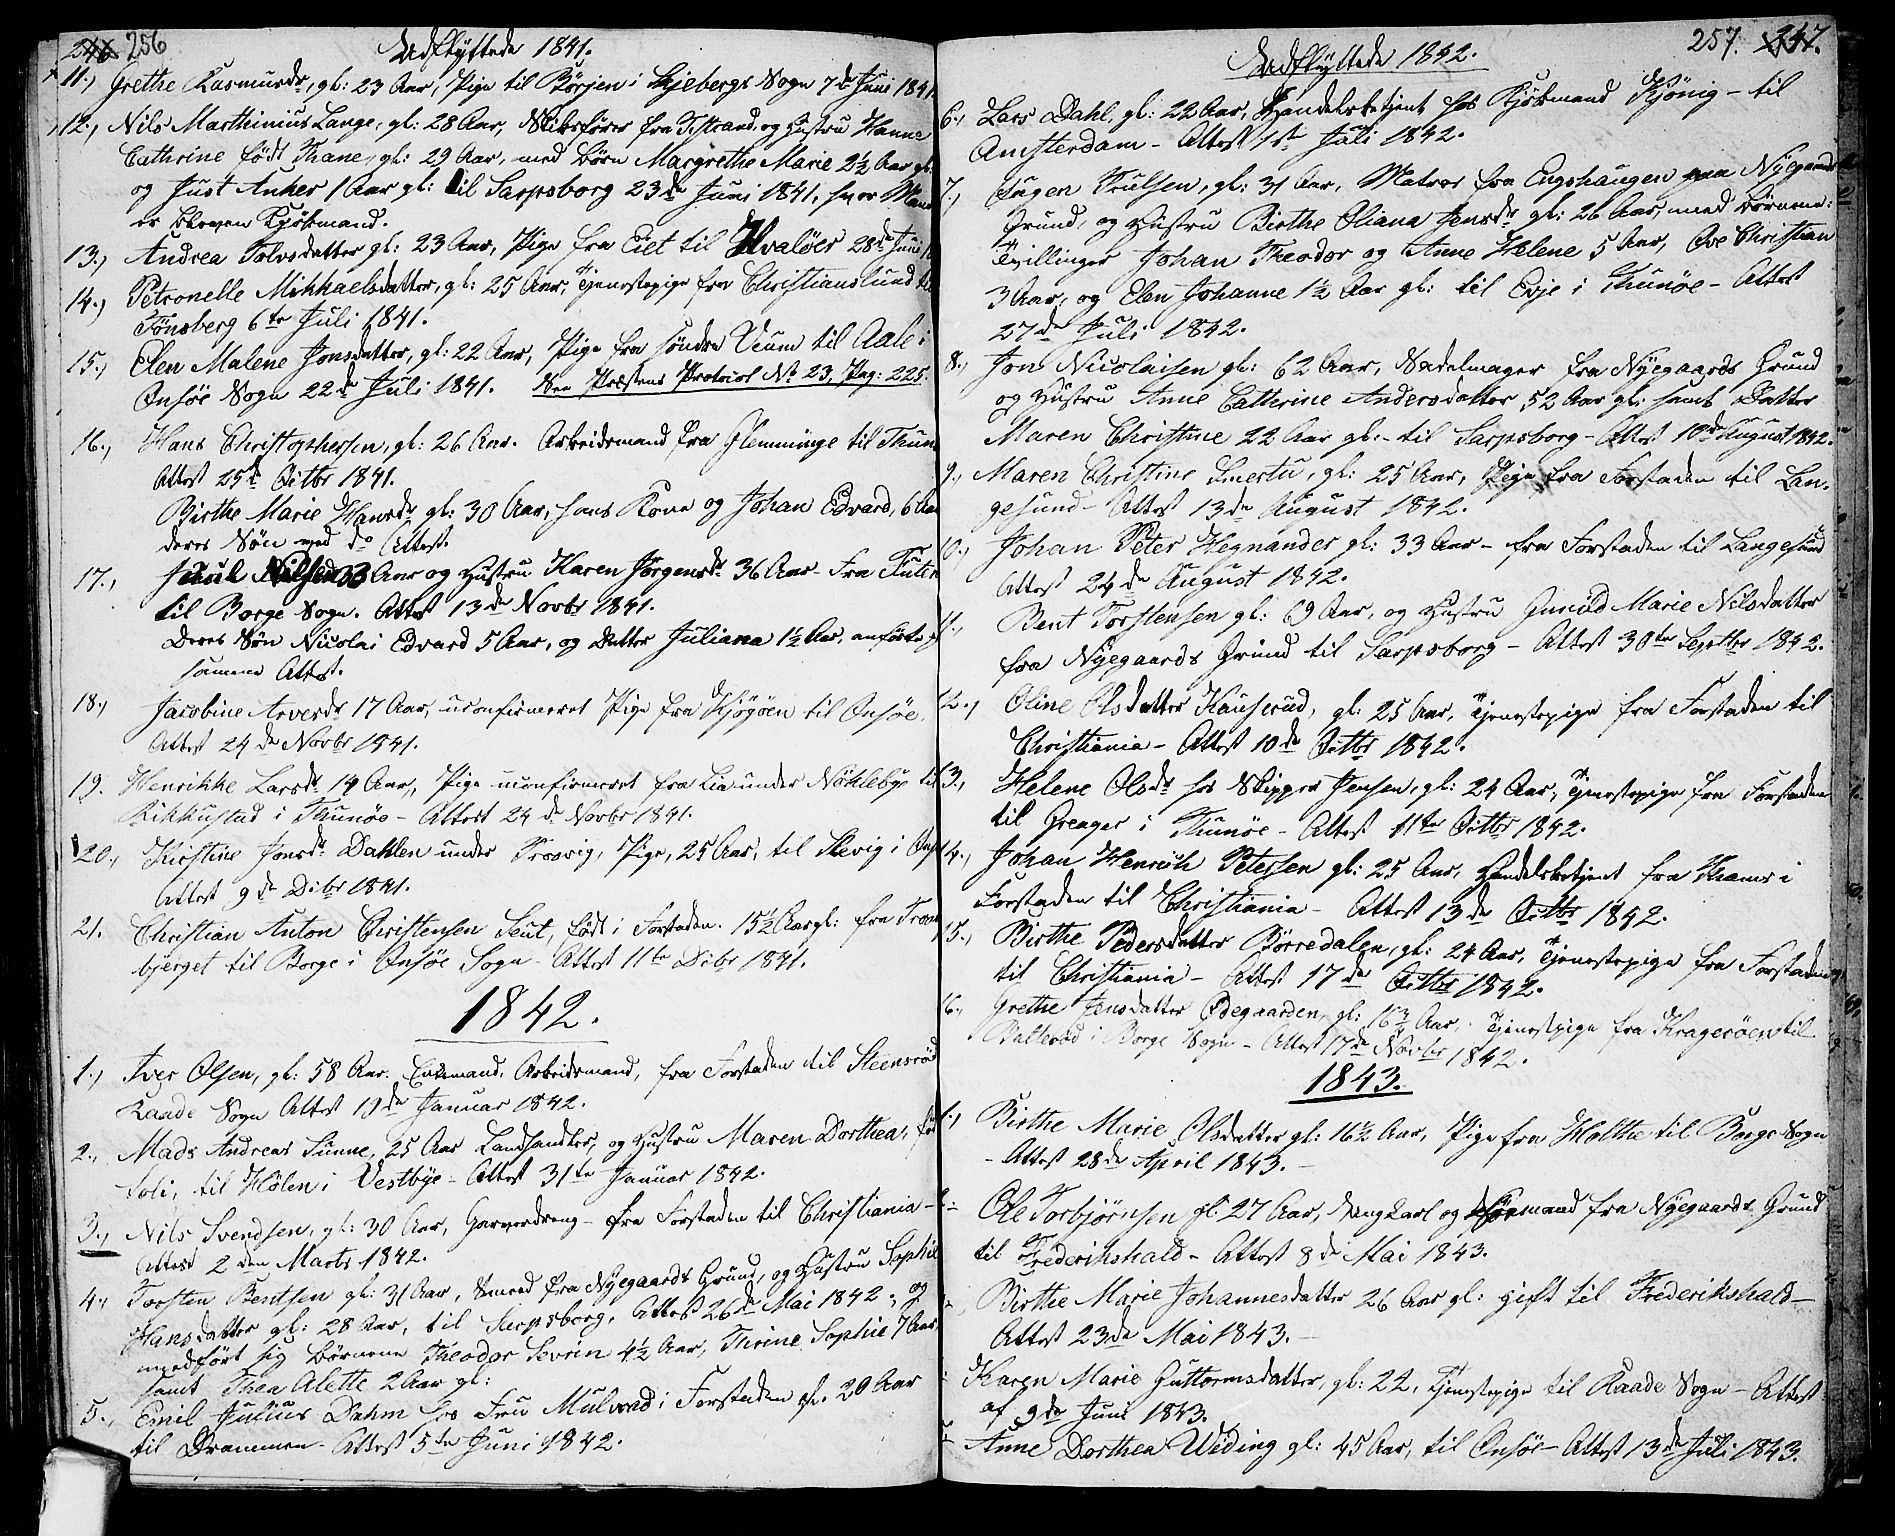 246 256
Udflyttede 1841.
11., Grethe Rasmusdr, gl: 23 Aar, Pige til Börjen i Skjebergs Sogn 7de Juni 1841
12., Nils Marthinius Lange, gl: 28 Aar, Skibsfører fra Tistrand, og Hustru Hanne
Cathrine født Thane, gl: 29 Aar, med børn Margrethe Marie 2½ Aar gl:
og Just Anker 1 Aar gl: til Sarpsborg 23de Juni 1841, hvor Man
er bleven Kjøbmand.
13., Andrea Tolvsdatter gl: 23 Aar, Pige fra Eiet til Hvaløer 28de Juni
14., Petronelle Mikkaelsdatter, gl: 25 Aar, Tjenestepige fra Christianslund til
Tönsberg 6te Juli 1841.
15., Elen Malene Jonsdatter, gl: 22 Aar, Pige fra søndre Veum til Aale i
Onsöe Sogn 22de Juli 1841. See Præstens Protocol No 23, Pag: 225.
16., Hans Christophersen, gl: 26 Aar. Arbeidsmand fra Glemminge til Thun
Attest 25de Octbr 1841.
Birthe Marie Hansdr gl: 30 Aar, hans Kone og Johan Edvard, 6 Aar
deres Søn med do Attest.
17., Nilsen 33 Aar og Hustru Karen Jörgensdr 36 Aar - fra
til Borge Sogn. Attest 13de Novbr 1841.
Deres Søn Nicolai Edvard 5 Aar, og Datter Juliana 1½ Aar, anførte p
samme Attest.
18., Jacobine Arvesdr 17 Aar, uconfirmeret Pige fra Kjøgöen til Onsöe.
Attest 24de Novbr 1841.
19. Henrikke Larsdr 14 Aar, Pige uconfirmeret fra Lie under Nöklebye til
Rikkustad i Thunöe - Attest 24de Novbr 1841.
20., Kirstine Jonsdr Dahlen under Trosvig, Pige, 25 Aar, til Slevig i Ons
Attest 9de Dcbr 1841.
21. Christian Anton Christensen Seut, født i Forstaden. 15½ Aar gl: fra Trom
bjerget til Borge i Onsöe Sogn - Attest 11te Dcbr 1841.
1842.
1., Iver Olsen, gl: 58 Aar. Enkemand, Arbeidsmand, fra Forstaden til Steensröd
Raade Sogn Attest 19de Januar 1842.
2., Mads Andreas Sunne, 25 Aar Landhandler, og Hustru Maren Dorthea, fö
Soli, til Hölen i Vestbye - Attest 31te Januar 1842.
3., Nils Svendsen, gl: 30 Aar, Garverdreng - fra Forstaden til Christiania -
Attest 2den Marts 1842.
4., Torsten Bentsen gl: 31 Aar, Smed fra Nyegaards Grund, og Hustru Sophie
Hansdatter gl: 28 Aar, til Sarpsborg, Attest 26de Mai 1842., og
medført sig børnene Theodor Severin 4½ Aar, Thrine Sophie 7 Aar,
samt Thea Alette 2 Aar gl:
5., Emil Julius Dahm hos Fru Mulvad i Forstaden gl. 20 Aar
til Drammen - Attest 5te Juni 1842.
257. 247.
Udflyttede 1842.
6., Lars Dahl, gl: 22 Aar, Handelsbetjent hos Kjøbmand Kjönig - til
Amsterdam - Attest 1ste Juli 1842.
7., Eugen Trulsen, gl: 31 Aar, Matros fra Engshaugen paa Nyegaards
Grund, og Hustru Birthe Oliana Jensdr gl: 26 Aar, med børnene:
Tvillinger Johan Theodor og Anne Helene 5 Aar, Ove Christian
3 Aar, og Elen Johanne 1½ Aar gl: til Evje i Thunöe - Attest
27de Juli 1842.
8., Jon Nicolaisen gl: 62 Aar, Sadelmager fra Nyegaards Grund
og Hustru Anne Cathrine Andersdatter 52 Aar gl: samt Datter
Maren Christine 22 Aar gl: - til Sarpsborg - Attest 10de August 1842.
9., Maren Christine Smertu, gl: 25 Aar, Pige fra Forstaden til Lan-
gesund - Attest 13de August 1842.
10., Johan Peter Hegnander gl: 33 Aar - fra Forstaden til Langesund
Attest 24de August 1842.
11., Bent Torstensen gl: 69 Aar, og Hustru Gunild Marie Nilsdatter
fra Nyegaards Grund til Sarpsborg - Attest 30te Septbr 1842.
12., Oline Olsdatter Hauserud, gl: 25 Aar, Tjenestepige fra Forstaden til
Christiania - Attest 10de Octbr 1842.
13., Helene Olsdr hos Skipper Jensen, gl: 24 Aar, Tjenestepige fra Forstaden
til Greager i Thunöe - Attest 11te Octbr 1842.
14., Johan Henrich Petersen gl: 25 Aar, Handelsbetjent fra Thams i
Forstaden til Christiania - Attest 13de Octbr 1842.
15., Birthe Pedersdatter Börredalen, gl: 24 Aar, Tjenestepige fra Forstaden
til Christiania - Attest 17de Octbr 1842.
16., Grethe Jensdatter Ödegaarden, gl: 16¾ Aar, Tjenestepige fra Kragerøen til
Batteröd i Borge Sogn - Attest 17de Novbr 1842.
1843.
1., Birthe Marie Olsdatter gl: 16½ Aar, Pige fra Holthe til Borge Sogn
- Attest 28de April 1843. -
Ole Torbjørnsen gl 27 Aar, Ungkarl og fra Nyegaards Grund
til Frederikshald - Attest 8de Mai 1843.
Birthe Marie Johannesdatter 26 Aar gl: gift til Frederikshald -
Attest 23de Mai 1843. -
Karen Marie Guttormsdatter, gl: 22, Tjenestepige til Raade Sogn - Attest
af 9de Juni 1843.
Anne Dorthea Widing gl: 45 Aar, til Onsöe - Attest 13de Juli 1843.